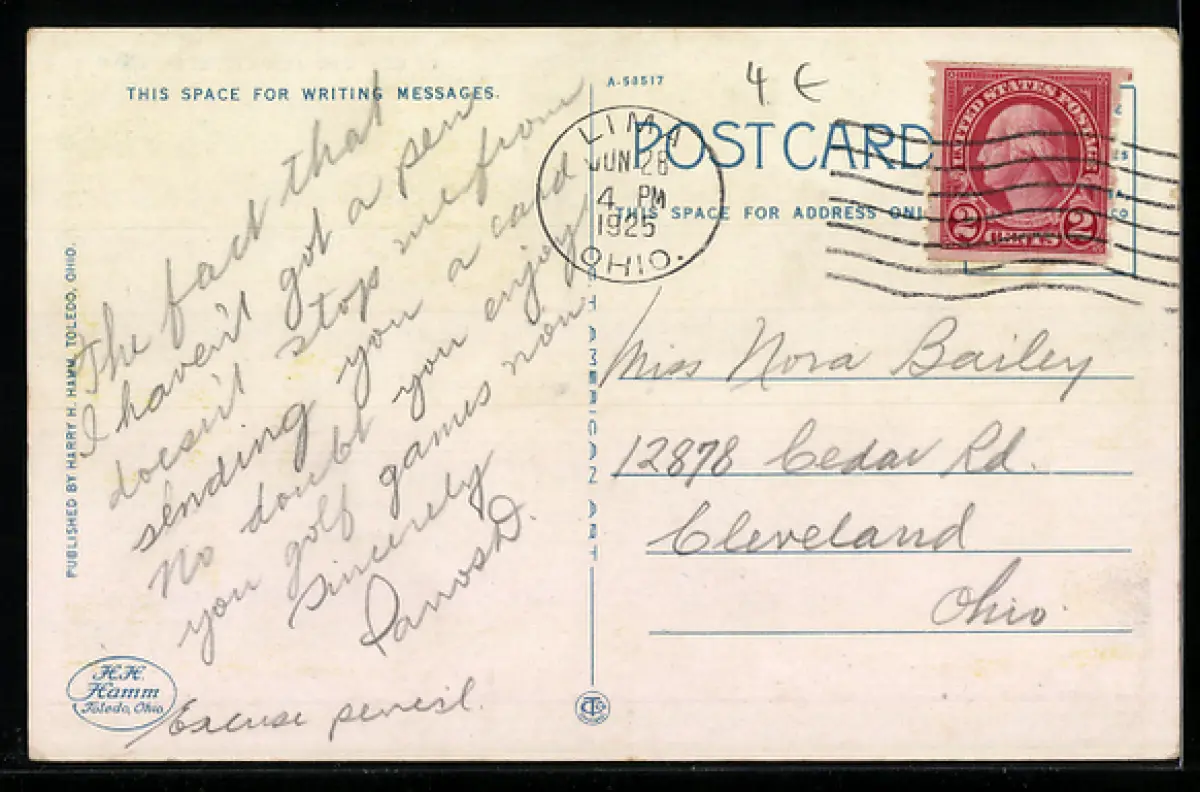 THIS SPACE FOR WRITING MESSAGES.
The fact that
I haven't got a pen
doesn't stop me from
sending you a card
No doubt you enjoy
you golf games now
Sincerely
Excuse pencil.
PUBLISHED BY HARRY H. HAMM, TOLEDO, OHIO.
H.H.
Hamm
Toledo, Ohio
A-98517
4 €
POST CARD
THIS SPACE FOR ADDRESS ONL
LIMA
JUN 28
4 PM
1925
OHIO.
UNITED STATES POSTAGE
2 CENTS 2
Miss Nora Bailey
12878 Cedar Rd.
Cleveland
Ohio.
AMERICAN ART
CT